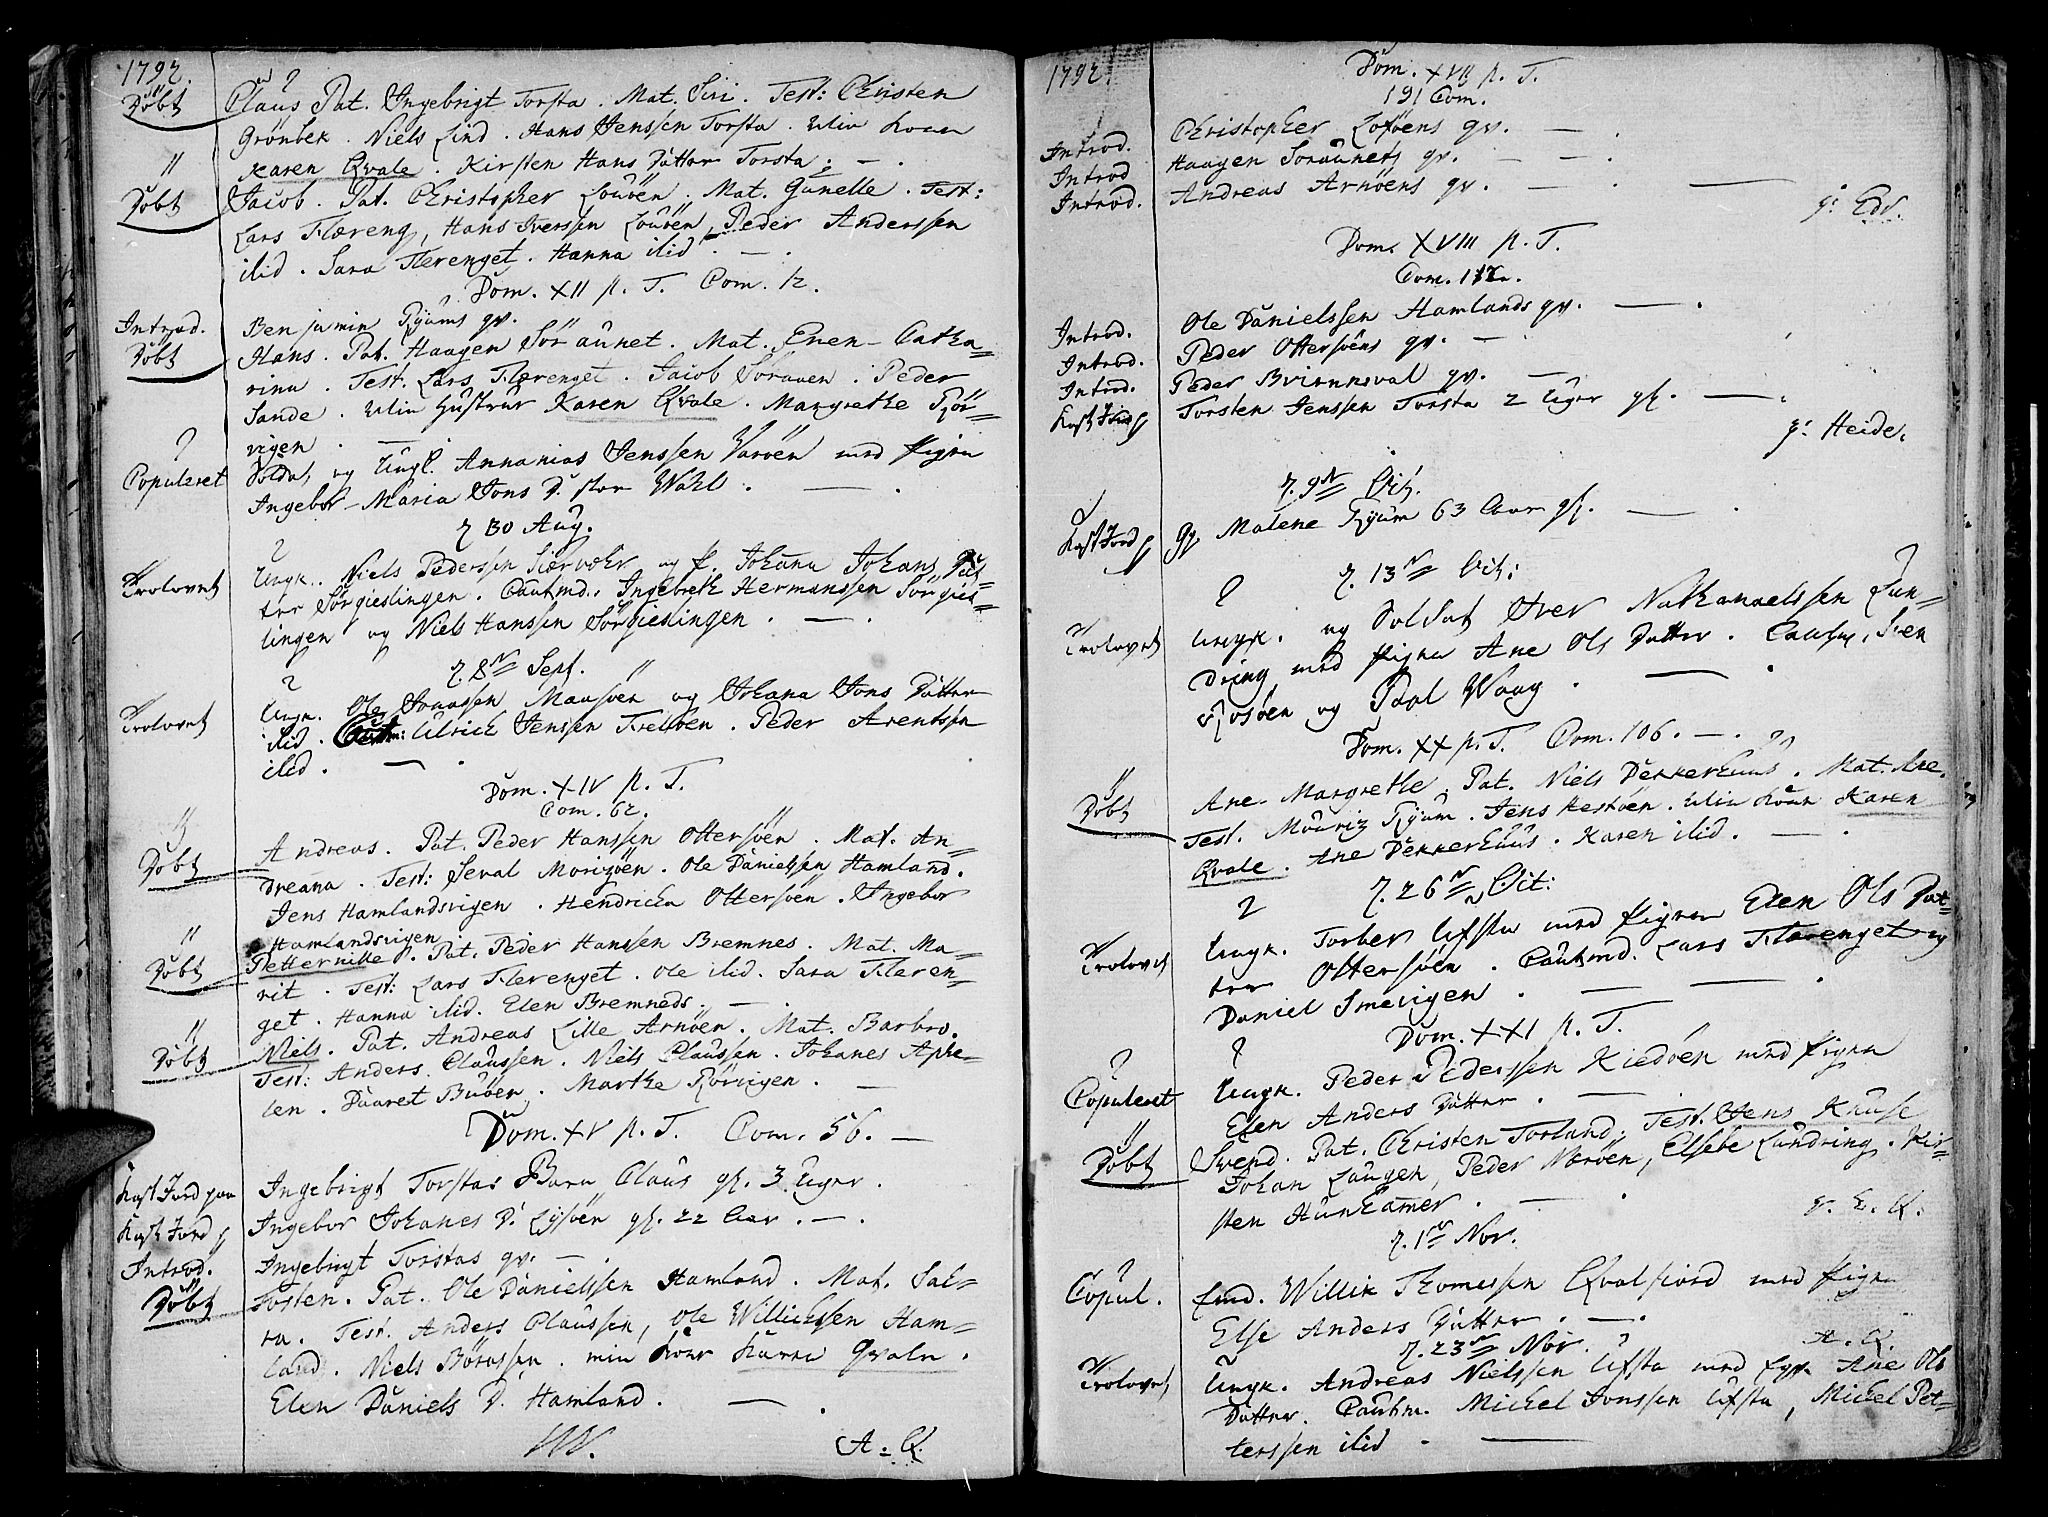 1792.
Döbt Claus Pat. Ingebrigt Torsta. Mat. Siri. Test: Christen
Grönbek. Niels Lind. Hans Jenssen Torsta. Min Kone
Karen Qvale. Kirsten Hans Datter Torsta. —.
Döbt Jacob. Pat. Christopher Louöen. Mat. Gunelle. Test:
Lars Flæreng, Hans Iverssen Louöen, Peder Anderssen
ibid. Sara Flerenget. Hanna ibid. —.
Dom. XII p. T. Com. 12.
Introd. Benjamin Ryums qv.
Döbt Hans. Pat. Haagen Söraunet. Mat. Enen-Catha=
rina. Test. Lars Flerenget. Jacob Söraunen. Peder
Sande. Min Hustrue Karen Qvale. Margrethe Rör=
vigen. —.
Copuleret Soldat og Ungk. Annanias Jenssen Varöen med Pigen
Ingebor-Maria Jons D. stor Wahl. —.
d. 30 Aug.
Trolovet Ungk. Niels Pederssen Siærvohr og P. Johana Johans Dat=
ter Sörgieslingen. Cautmd. Ingebreth Hermanssen Sörgies=
lingen og Niels Hanssen Sörgieslingen. —.
d. 8de Sept.
Trolovet Ungk. Ole Jonassen Maasöen og Johana Jons Datter
ibid. Caut: Ulrich Jenssen Frelsöen. Peder Arentsen
ibid. —.
Dom. XIV p. T.
Com. 62.
Döbt Andreas. Pat. Peder Hanssen Ottersöen. Mat. An=
dreana. Test: Seval Morizöen. Ole Danielssen Hamland.
Jens Hamlandsvigen. Hendricha Ottersöen. Ingebor
Hamlandsvigen.
Döbt Petternille. Pat. Peder Hanssen Bremnes. Mat. Ma=
rit. Test: Lars Flerenget. Ole ibid. Sara Fleren=
get. Hanna ibid. Elen Bremneds. —.
Döbt Niels. Pat. Andreas Lille Arnöen. Mat. Barbro.
Test: Anders Claussen. Niels Claussen. Johanes Aphe=
len. Daaret Buöen. Marthe Rörvigen. —
Dom. XV p. T. Com. 56. —
Kast Jord paa Ingebrigt Torstas Barn Claus gl. 3 Uger.
Kast Jord p Ingebor Johanes D. Lysöen gl. 22 Aar. —.
Introd. Ingebrigt Torstas qv. —.
Döbt Torsten. Pat. Ole Danielssen Hamland. Mat. Sal=
ra. Test. Anders Claussen, Ole Willichssen Ham=
land. Niels Börgssen. min Kone Karen Qvale.
Elen Daniels D. Hamland. —.
A. Q.
1792.
Dom. XVII p. T.
191 Com.
Introd. Christopher Loföens qv. —.
Introd Haagen Söraunets qv. —.
Introd. Andreas Arnöens qv. —. —
p: Edv.
Dom. XVIII p. T.
Com. 112.
Introd. Ole Danielssen Hamlands qv. —.
Introd. Peder Ottersöens qv. —.
Introd. Peder Bvirnnsval qv. —
Kast Jord p Torsten Jenssen Torsta 2 Uger gl. —.
p: Heide.
d. 9de Oct.
Kast Jord p Gg Malene Ryum 63 Aar gl. —.
d. 13de Oct:
Trolovet Ungk. og Soldat Iver Nathanaelssen Lun=
dring med Pigen Ane Ols Datter. Caut, Sven
Rosöen og Paal Waag. —.
Dom. XX p. T. Com. 106. —.
Döbt Ane-Margrethe. Pat. Niels Dekkerhuus. Mat. Ane.
Test. Mouriz Ryum. Jens Hestöen. Min Kone Karen
Qvale. Ane Dekkerhuus. Karen ibid. —.
d. 26de Oct:
Trolovet Ungk. Torber Ufsta med Pigen Elen Ols Dat=
ter Ottersöen. Cautmd. Lars Flerenget og
Daniel Smevigen. —.
Dom. XXI p. T.
Copuleret Ungk. Peder Pederssen Kiedöen med Pigen
Elen Anders Datter. —.
Döbt Svend. Pat. Christen Torland. Test. Jens Kruse
Johan Laugen, Peder Næröen, Elsebe Lundring. Kir=
sten Hunkamer. —.
p. E. Q.
d. 1de Nov.
Copul. Willik Thomessen Qvalfiord med Pigen
Else Anders Datter. —.
A. Q.
d. 23de Nov.
Trolovet Ungk. Andreas Nielssen Ufsta med Ane Ols
Datter. Cautm. Michel Jonssen Ufsta, Michel Pet=
terssen ibid. —